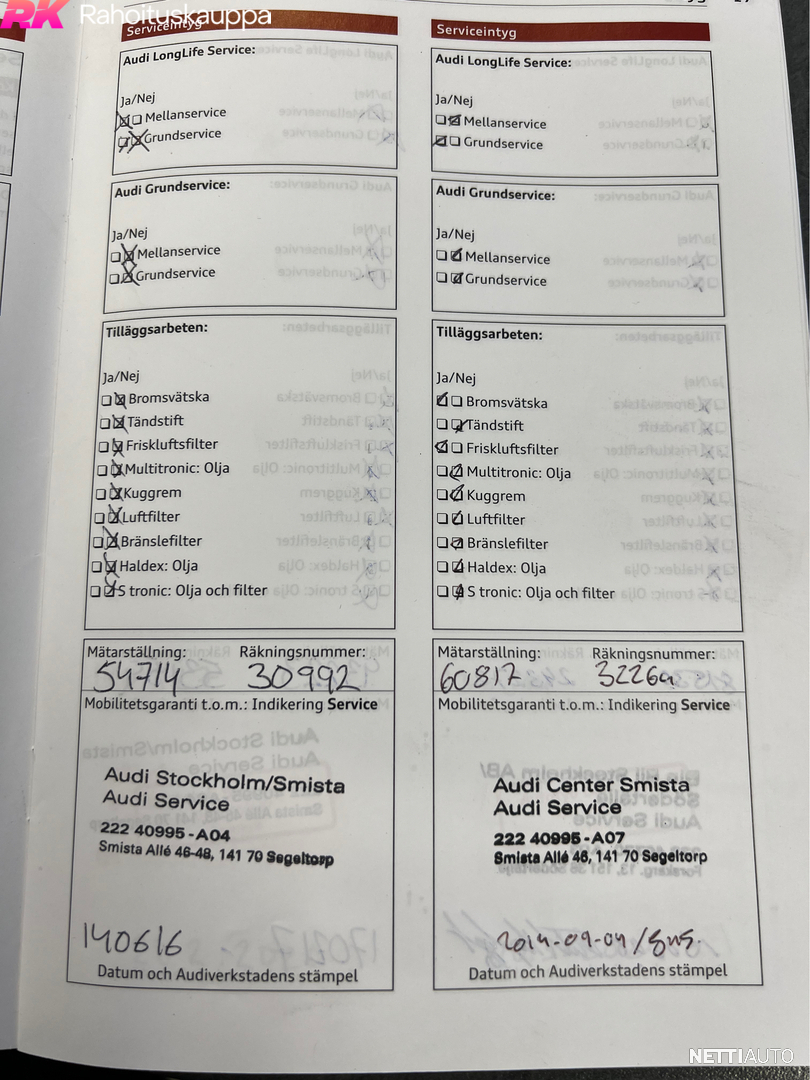 RK Rahoituskauppa
Serviceintyg
Audi LongLife Service:
Ja/Nej
Mellanservice
Grundservice
Audi Grundservice:
Ja/Nej
Mellanservice
Grundservice
Tilläggsarbeten:
Ja/Nej
Bromsvätska
Tändstift
Friskluftsfilter
Multitronic: Olja
Kuggrem
Luftfilter
Bränslefilter
Haldex: Olja
S tronic: Olja och filter
Mätarställning: Räkningsnummer:
54714 30992
Mobilitetsgaranti t.o.m.: Indikering Service
Audi Stockholm/Smista
Audi Service
222 40995-A04
Smista Allé 46-48, 141 70 Segeltorp
140616
Datum och Audiverkstadens stämpel
Serviceintyg
Audi LongLife Service:
Ja/Nej
Mellanservice
Grundservice
Audi Grundservice:
Ja/Nej
Mellanservice
Grundservice
Tilläggsarbeten:
Ja/Nej
Bromsvätska
Tändstift
Friskluftsfilter
Multitronic: Olja
Kuggrem
Luftfilter
Bränslefilter
Haldex: Olja
S tronic: Olja och filter
Mätarställning: Räkningsnummer:
60817
Mobilitetsgaranti t.o.m.: Indikering Service
Audi Center Smista
Audi Service
222 40995-A07
Smista Allé 46, 141 70 Segeltorp
2014-09-04
Datum och Audiverkstadens stämpel
NETTIAUTO